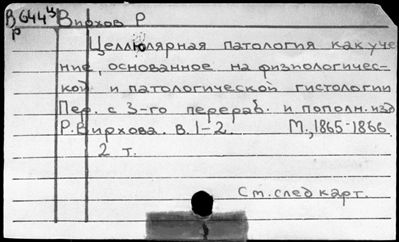 В 644ц Вирхов Р
Р
Целлюлярная патология как уче
ние, основанное на физиологичес-
кой и патологической гистологии
Пер. с 3-го перераб. и пополн. изд
Р. Вирхова. в. 1-2. М., 1865-1866
2 т.
См. след карт.